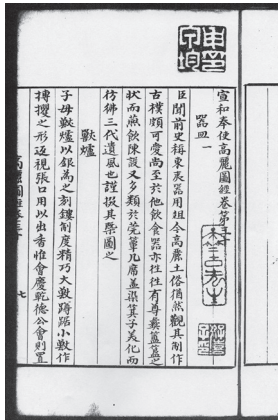 宣和奉使高麗圖經卷第三十
器皿一
臣聞前史稱東夷器用俎今高麗土俗猶然觀其制作
古樸頗可愛尚至於他飲食器亦往往有尊彝簠簋之
狀而燕飲陳設又多類於莞簟几席蓋染箕子美化而
彷彿三代遺風也謹掇其槩圖之
獸爐
子母獸爐以銀為之刻鏤制度精巧大獸蹲踞小獸作
搏攫之形返視張口用以出香惟會慶乾德公會則置
高麗圖經卷三十
七